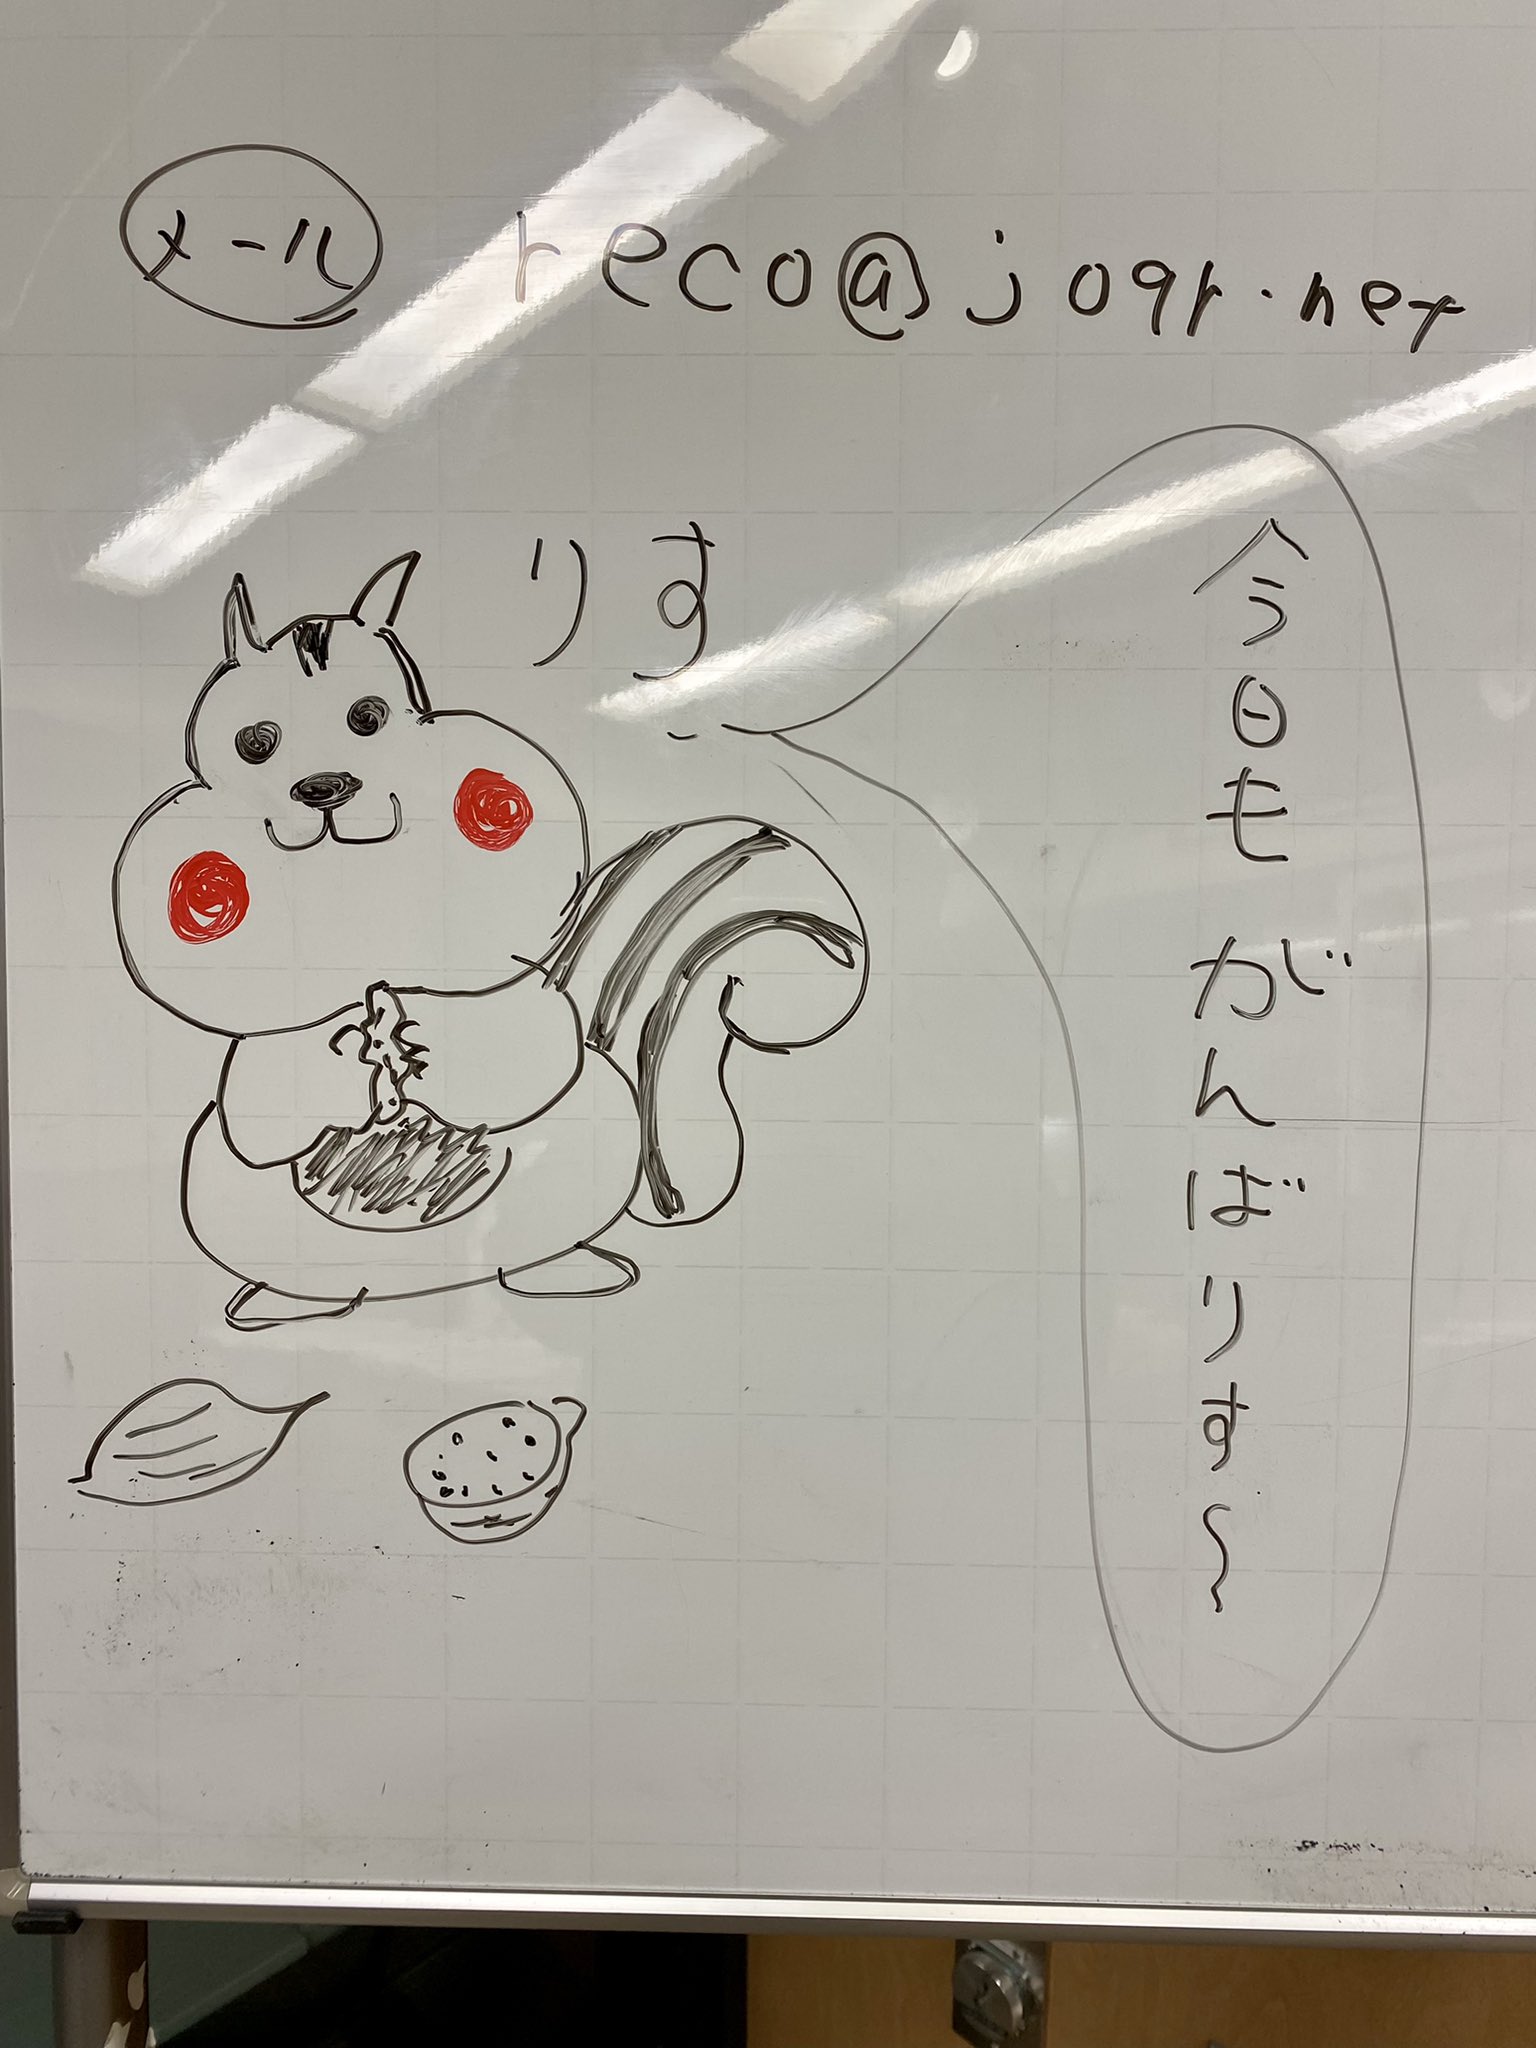 メール reco@joqr.net
りす
今日もがんばりす〜